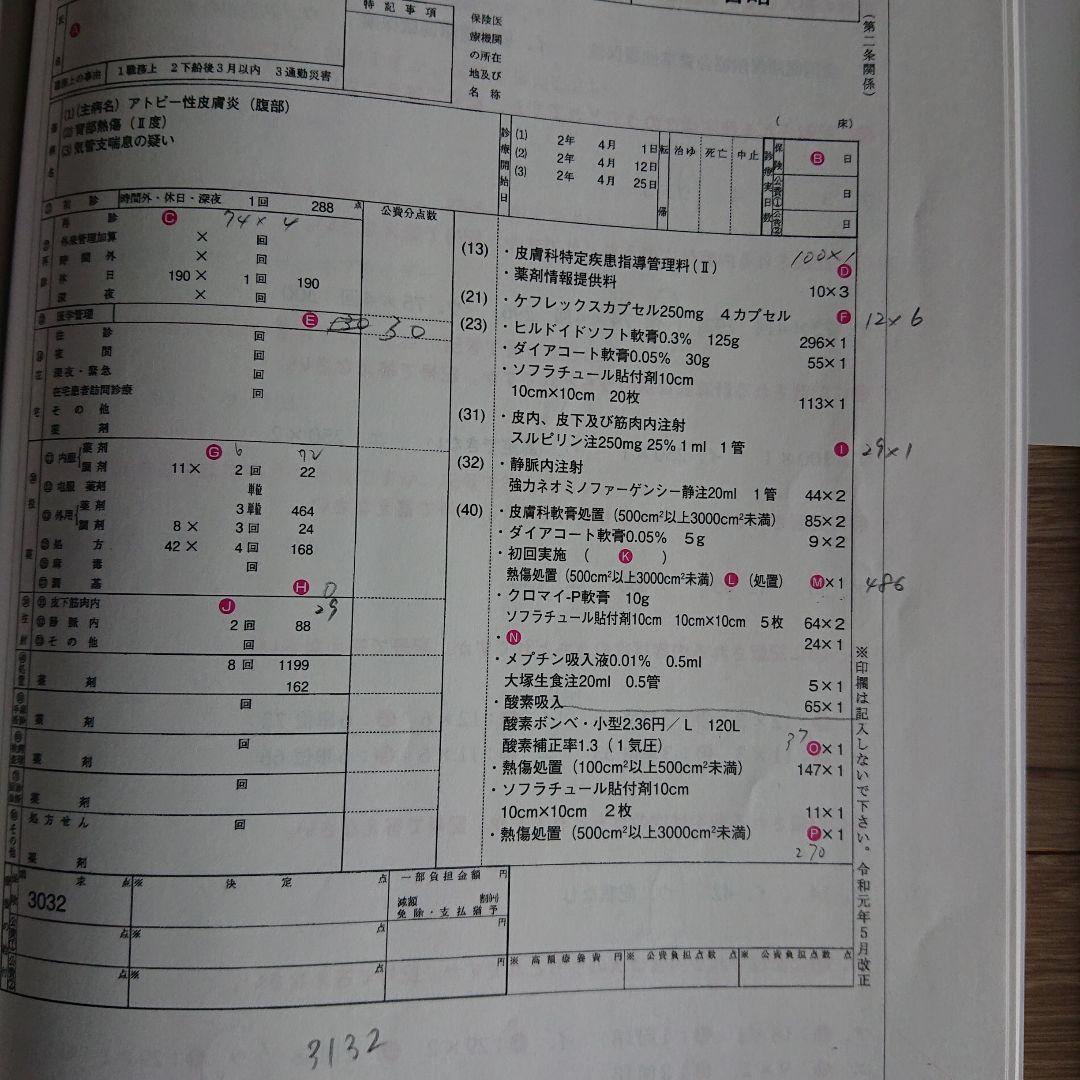 特記事項
保険医
療機関
の所在
地及び
名称
(第二条関係)
A
名
職務上の事由 1職務上 2下船後3月以内 3通勤災害
( 床)
(1)(主病名) アトピー性皮膚炎(腹部)
(2) 背部熱傷(Ⅱ度)
(3) 気管支喘息の疑い
傷病名
診療開始日
(1) 2年 4月 1日
(2) 2年 4月 12日
(3) 2年 4月 25日
転帰
治ゆ 死亡 中止
診療実日数
保険 B 日
公費① 日
公費② 日
初診 時間外・休日・深夜 1回 288 点 公費分点数
再診 C 74×4
外来管理加算 × 回
時間外 × 回
休日 190× 1回 190
深夜 × 回
医学管理 E 130 30
往診 回
夜間 回
深夜・緊急 回
在宅患者訪問診療 回
その他
薬剤
内服 薬剤 G 6 72
調剤 11× 2回 22
屯服 薬剤 単位
外用 薬剤 3単位 464
調剤 8× 3回 24
処方 42× 4回 168
麻毒 回
調基 H 0
皮下筋肉内 J 29
静脈内 2回 88
その他 回
8回 1199
薬剤 162
回
薬剤
回
薬剤
回
薬剤
処方せん 回
薬剤
(13) ・皮膚科特定疾患指導管理料(Ⅱ) 100×1
・薬剤情報提供料 D
10×3
(21) ・ケフレックスカプセル250mg 4カプセル F 12×6
(23) ・ヒルドイドソフト軟膏0.3% 125g 296×1
・ダイアコート軟膏0.05% 30g 55×1
・ソフラチュール貼付剤10cm
10cm×10cm 20枚 113×1
(31) ・皮内、皮下及び筋肉内注射
スルピリン注250mg 25% 1ml 1管 I 29×1
(32) ・静脈内注射
強力ネオミノファーゲンシー静注20ml 1管 44×2
(40) ・皮膚科軟膏処置(500cm²以上3000cm²未満) 85×2
・ダイアコート軟膏0.05% 5g 9×2
・初回実施 ( K )
熱傷処置(500cm²以上3000cm²未満) L (処置) M×1 486
・クロマイ-P軟膏 10g
ソフラチュール貼付剤10cm 10cm×10cm 5枚 64×2
・N 24×1
・メプチン吸入液0.01% 0.5ml
大塚生食注20ml 0.5管 5×1
・酸素吸入 65×1
酸素ボンベ・小型2.36円/L 120L
酸素補正率1.3(1気圧) 37 O×1
・熱傷処置(100cm²以上500cm²未満) 147×1
・ソフラチュール貼付剤10cm
10cm×10cm 2枚 11×1
・熱傷処置(500cm²以上3000cm²未満) P×1
270
※印欄は記入しないで下さい。令和元年5月改正
請求 点 ※ 決定 点 一部負担金額 円
3032
減額 割(円)
免除・支払猶予
点 ※ 点 円
点 ※ 点 円 ※ 高額療養費 円 ※ 公費負担点数 点 ※ 公費負担点数 点
3132